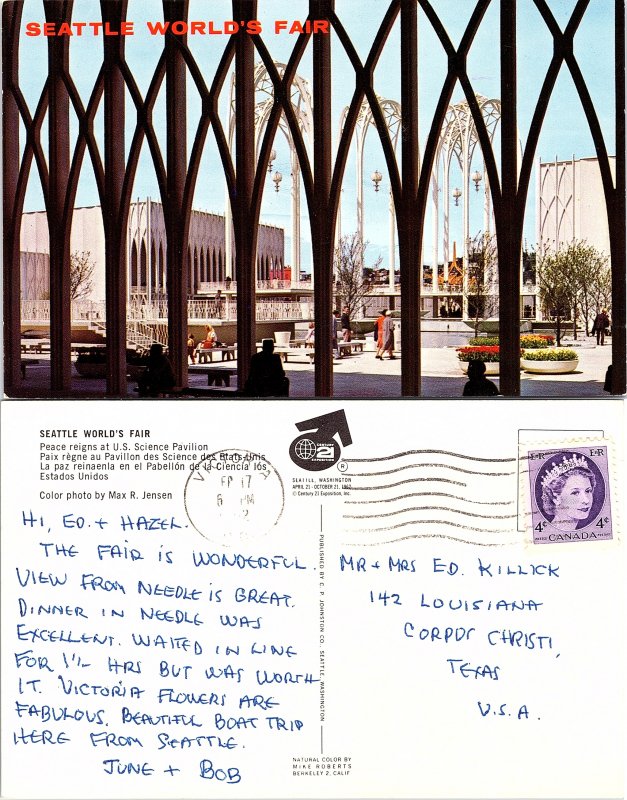 SEATTLE WORLD'S FAIR
SEATTLE WORLD'S FAIR
Peace reigns at U.S. Science Pavilion
Paix règne au Pavillon des Science des Etats-Unis
La paz reinaenla en el Pabellón de la Ciencia los
Estados Unidos
Color photo by Max R. Jensen
CENTURY
21
EXPOSITION
®
SEATTLE, WASHINGTON
APRIL 21 - OCTOBER 21, 1962
© Century 21 Exposition, Inc.
17
PM
E·R E·R
4¢ 4¢
CANADA
HI, ED. + HAZEL.
THE FAIR IS WONDERFUL.
VIEW FROM NEEDLE IS GREAT.
DINNER IN NEEDLE WAS
EXCELLENT. WAITED IN LINE
FOR 1½ HRS BUT WAS WORTH
IT. VICTORIA FLOWERS ARE
FABULOUS. BEAUTIFUL BOAT TRIP
HERE FROM SEATTLE.
JUNE + BOB
PUBLISHED BY C. P. JOHNSTON CO., SEATTLE, WASHINGTON
NATURAL COLOR BY
MIKE ROBERTS
BERKELEY 2, CALIF
MR + MRS ED. KILLICK
142 LOUISIANA
CORPUS CHRISTI,
TEXAS
U.S.A.